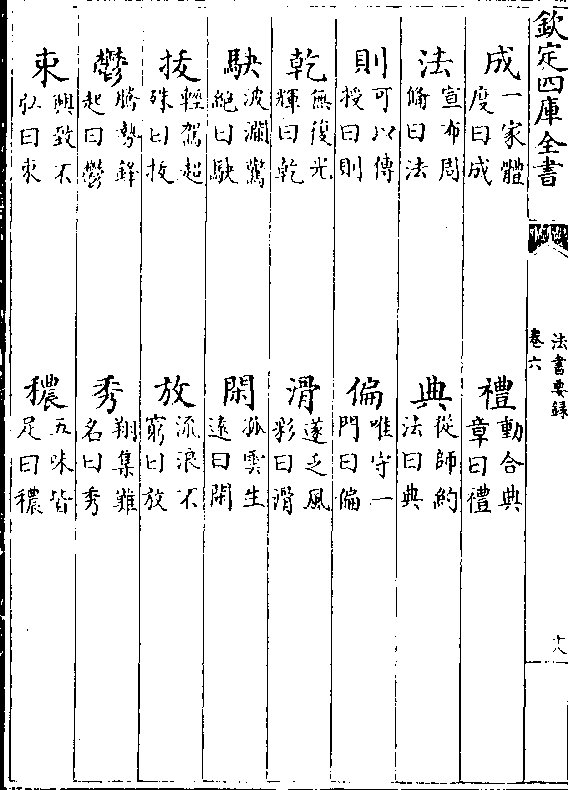 欽定四庫全書
法書要錄
卷六
十八
成一家體度曰成
禮動合典章曰禮
法宣布周備曰法
典從師約法曰典
則可以傳授曰則
偏唯守一門曰偏
乾無復光輝曰乾
滑遂乏風彩曰滑
駃波瀾驚絶曰駃
閑孤雲生遠曰閑
拔輕駕超殊曰拔
放流浪不窮曰放
鬱勝勢鋒起曰鬱
秀翔集難名曰秀
束興致不弘曰束
穠五味皆足曰穠